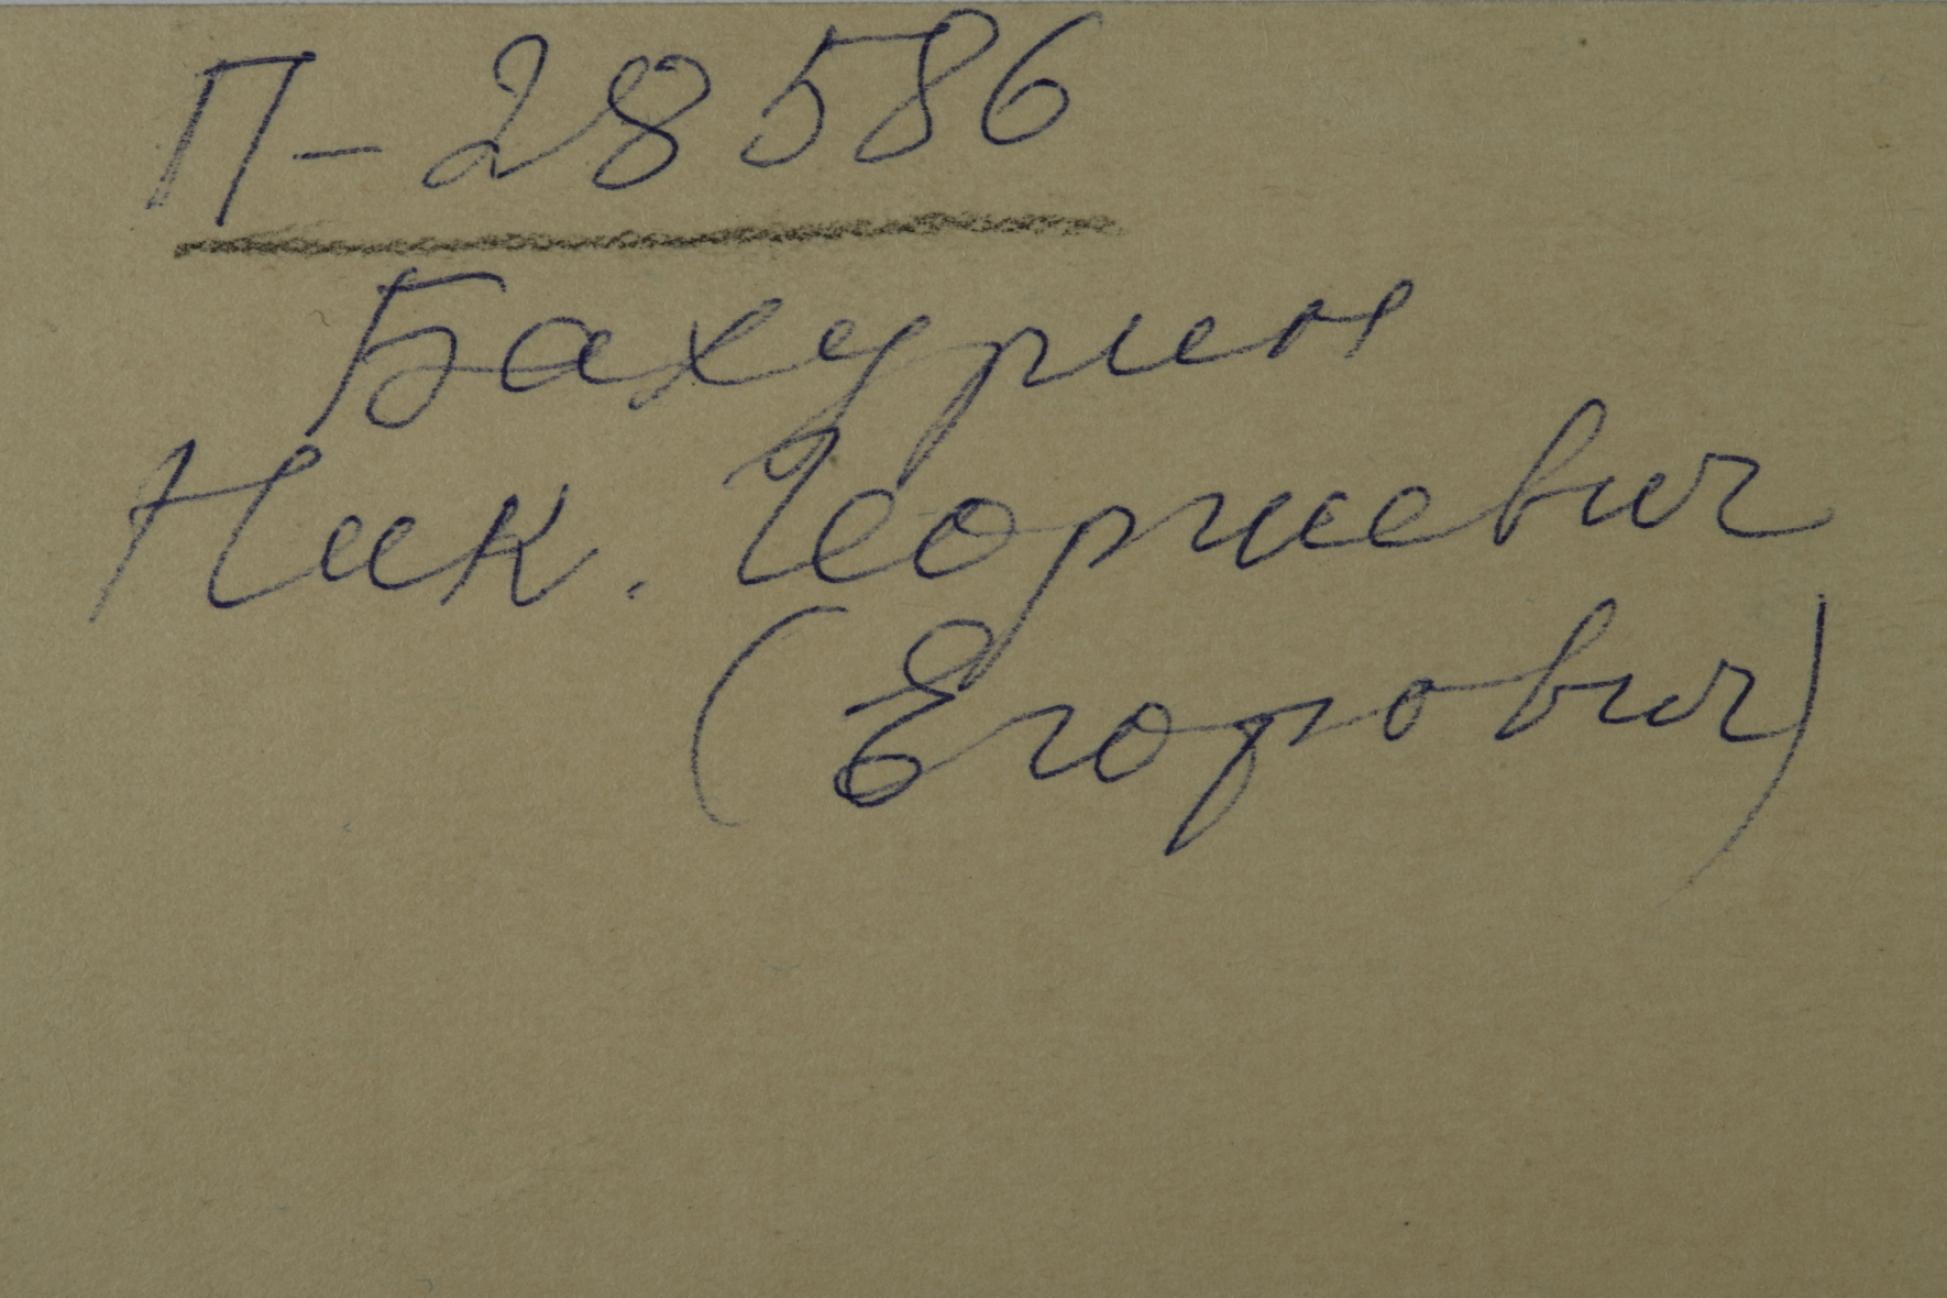 П-28586
Бахурин
Ник. Георгиевич
(Егорович)